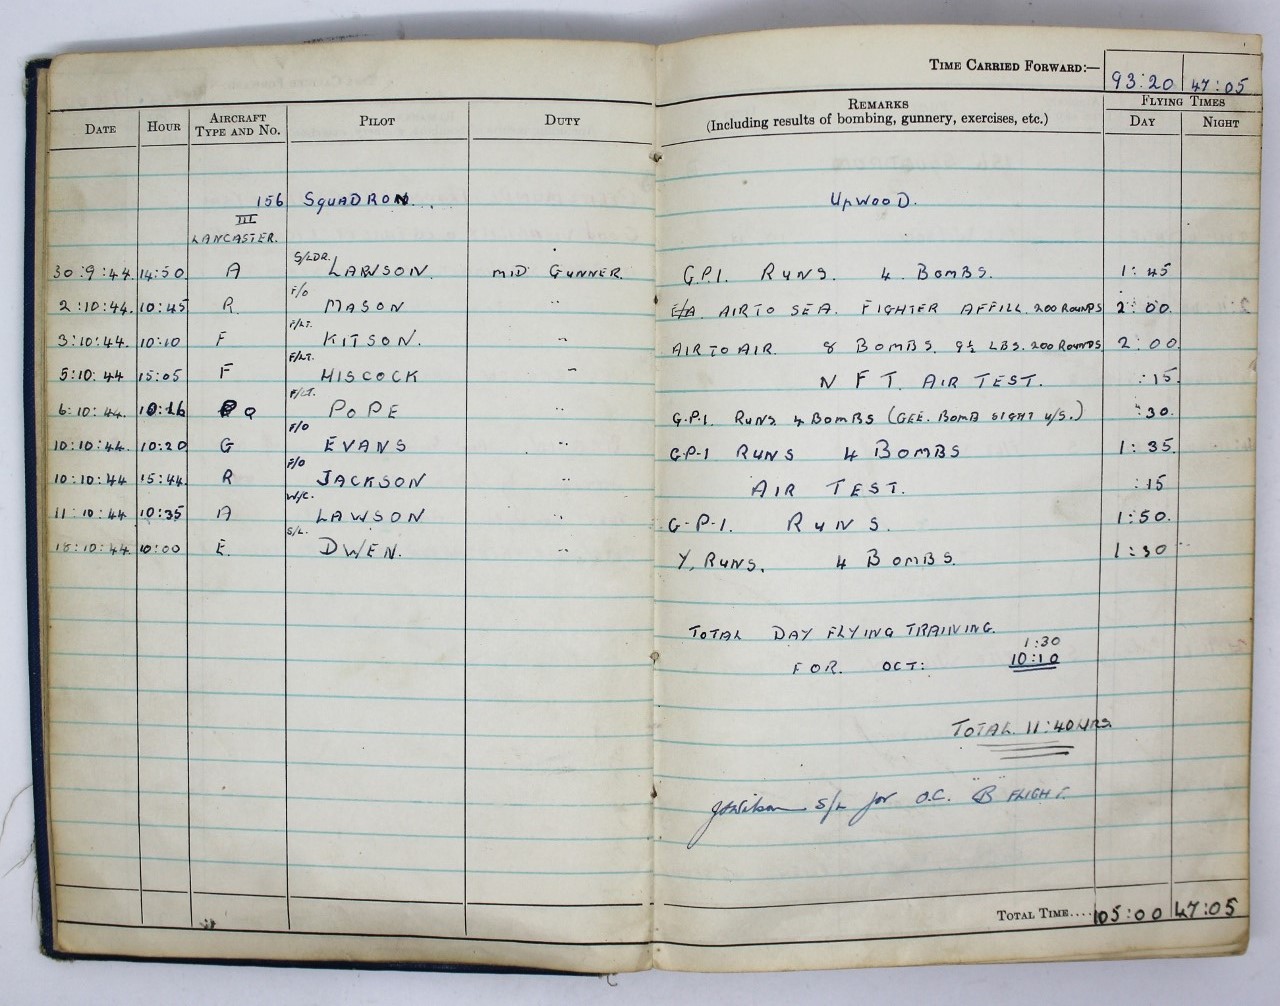 TIME CARRIED FORWARD:— 93:20 47:05
DATE HOUR AIRCRAFT TYPE AND No. PILOT DUTY REMARKS (Including results of bombing, gunnery, exercises, etc.) FLYING TIMES DAY NIGHT
156 SQUADRON... UPWOOD.
III
LANCASTER.
30:9:44. 14:50 A S/LDR. LAWSON. MID GUNNER. G.P.I. RUNS. 4 BOMBS. 1:45
2:10:44. 10:45 R. F/O MASON " AIR TO SEA. FIGHTER AFFILL. 200 ROUNDS 2:00.
3:10:44. 10:10 F F/LT. KITSON. " AIR TO AIR. 8 BOMBS. 9½ LBS. 200 ROUNDS 2:00.
5:10:44 15:05 F F/LT. HISCOCK " N F T. AIR TEST. :15.
6:10:44. 10:16 Q F/LT. POPE " G.P.I. RUNS 4 BOMBS (GEE. BOMB SIGHT U/S.) :30.
10:10:44. 10:20 G F/O EVANS " G-P-I RUNS 4 BOMBS 1:35.
10:10:44 15:44. R F/O JACKSON " AIR TEST. :15
11:10:44 10:35 A W/C. LAWSON " G-P-I. RUNS. 1:50.
10:00 E. S/L. DWEN. " Y, RUNS. 4 BOMBS. 1:30
TOTAL DAY FLYING TRAINING. 1:30
FOR. OCT: 10:10
TOTAL 11:40 HRS.
S/L for O.C. "B" FLIGHT.
TOTAL TIME.... 105:00 47:05